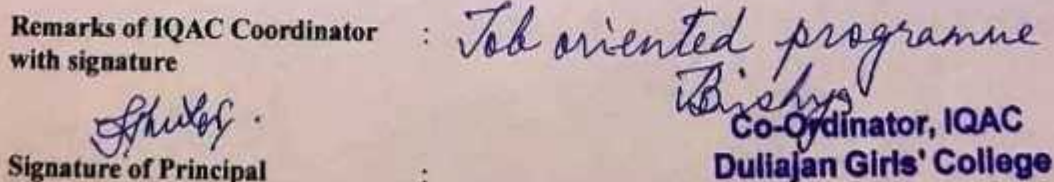 Remarks of IQAC Coordinator : Job oriented programme
with signature
Co-Ordinator, IQAC
Duliajan Girls' College
Signature of Principal :